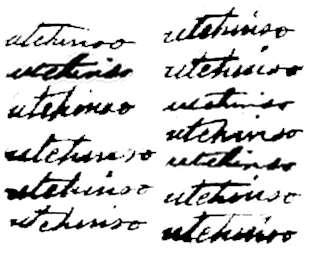 utchinso
utchinso
utchinso
utchinso
utchinso
utchinso
utchinso
utchinso
utchinso
utchinso
utchinso
utchinso
utchinso